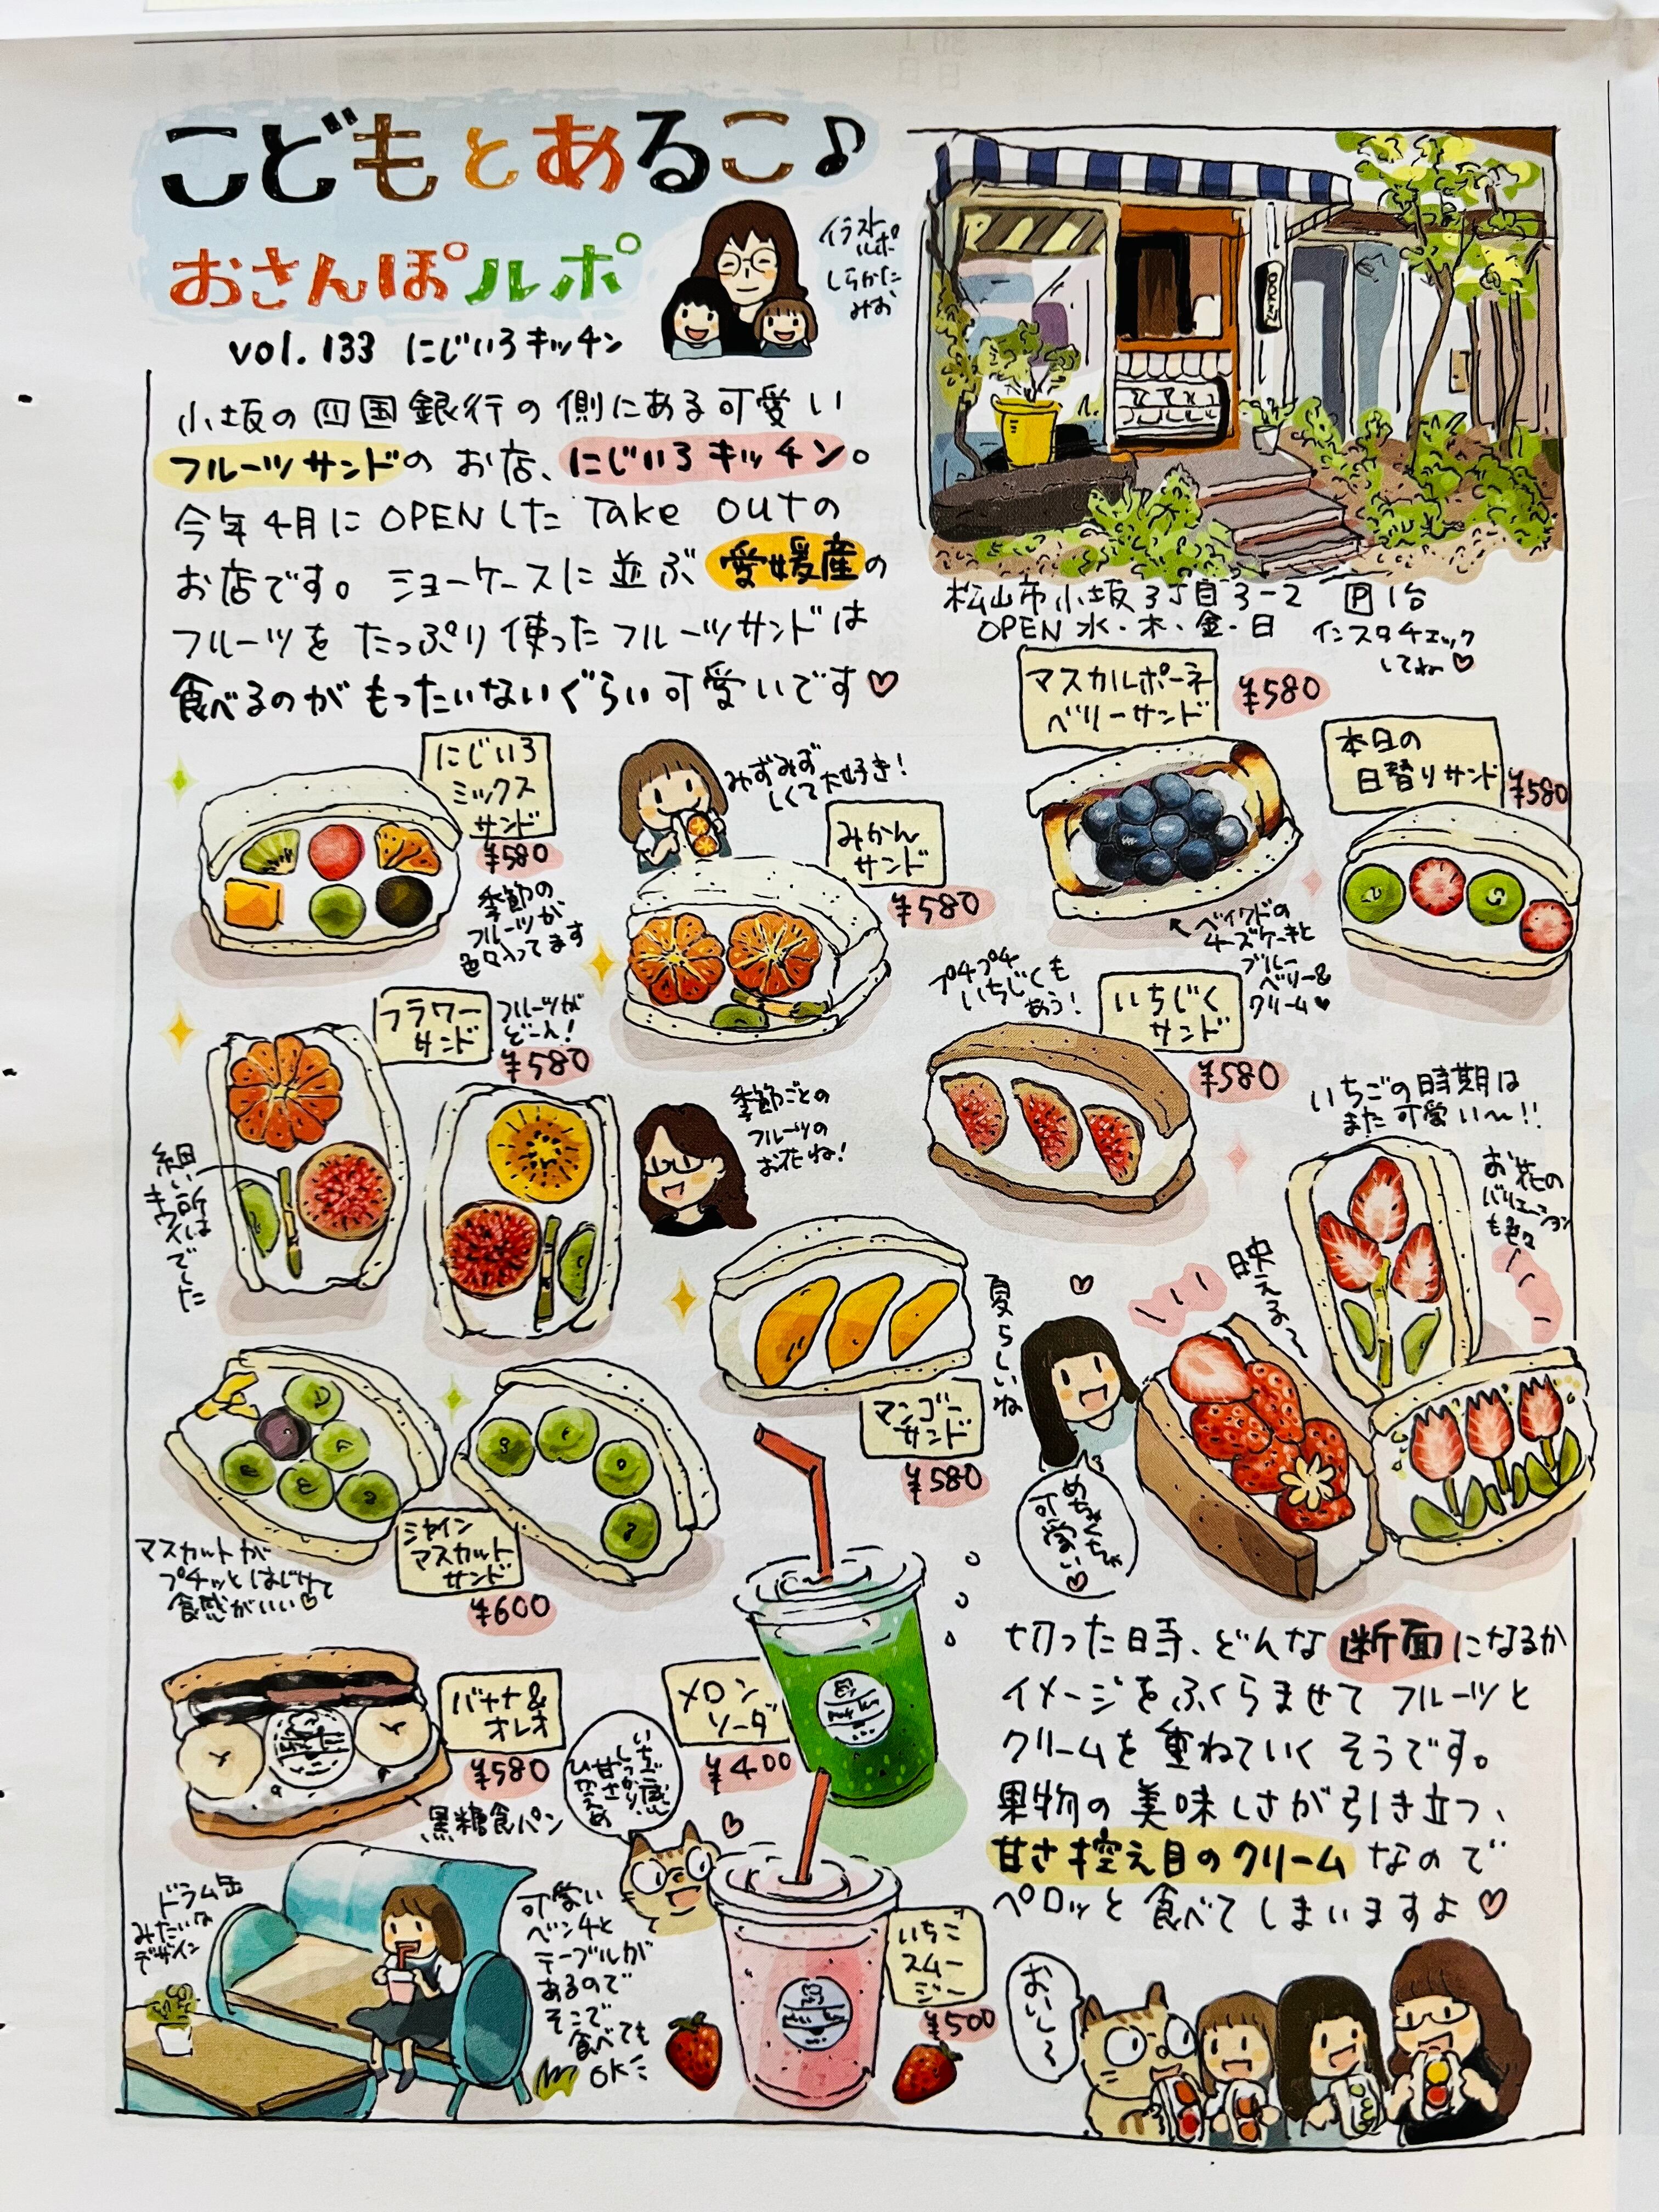 こどもとあるこ♪
おさんぽルポ
vol.133 にじいろキッチン
イラスト
ルポ
しらかた
みお
小坂の四国銀行の側にある可愛い
フルーツサンドのお店、にじいろキッチン。
今年4月にOPENした Take outの
お店です。ショーケースに並ぶ愛媛産の
フルーツをたっぷり使ったフルーツサンドは
食べるのがもったいないぐらい可愛いです♡
松山市小坂3丁目3-2 P1台
OPEN 水・木・金・日
インスタチェック
してね♡
にじいろ
ミックス
サンド
¥580
季節の
フルーツが
色々入ってます
みずみず
しくて大好き!
みかん
サンド
¥580
マスカルポーネ
ベリーサンド
¥580
ベイクドの
チーズケーキと
ブルー
ベリー&
クリーム♥
本日の
日替りサンド
¥580
フラワー
サンド
フルーツが
どーん!
¥580
細い所は
キウイでした
季節ごとの
フルーツの
お花ね!
プチプチ
いちじくも
あう!
いちじく
サンド
¥580
いちごの時期は
また可愛い〜!!
お花の
バリエーション
も色々
映える〜
夏らしいね
マンゴー
サンド
¥580
めちゃくちゃ
可愛い♡
マスカットが
プチッとはじけて
食感がいい♡
シャイン
マスカット
サンド
¥600
バナナ&
オレオ
¥580
黒糖食パン
メロン
ソーダ
¥400
いちご感
しっかり、
甘さ
ひかえめ
いちご
スムー
ジー
¥500
ドラム缶
みたいな
デザイン
可愛い
ベンチと
テーブルが
あるので
そこで
食べても
OK
切った時、どんな断面になるか
イメージをふくらませてフルーツと
クリームを重ねていくそうです。
果物の美味しさが引き立つ、
甘さ控え目のクリームなので
ペロッと食べてしまいますよ♡
おいし〜